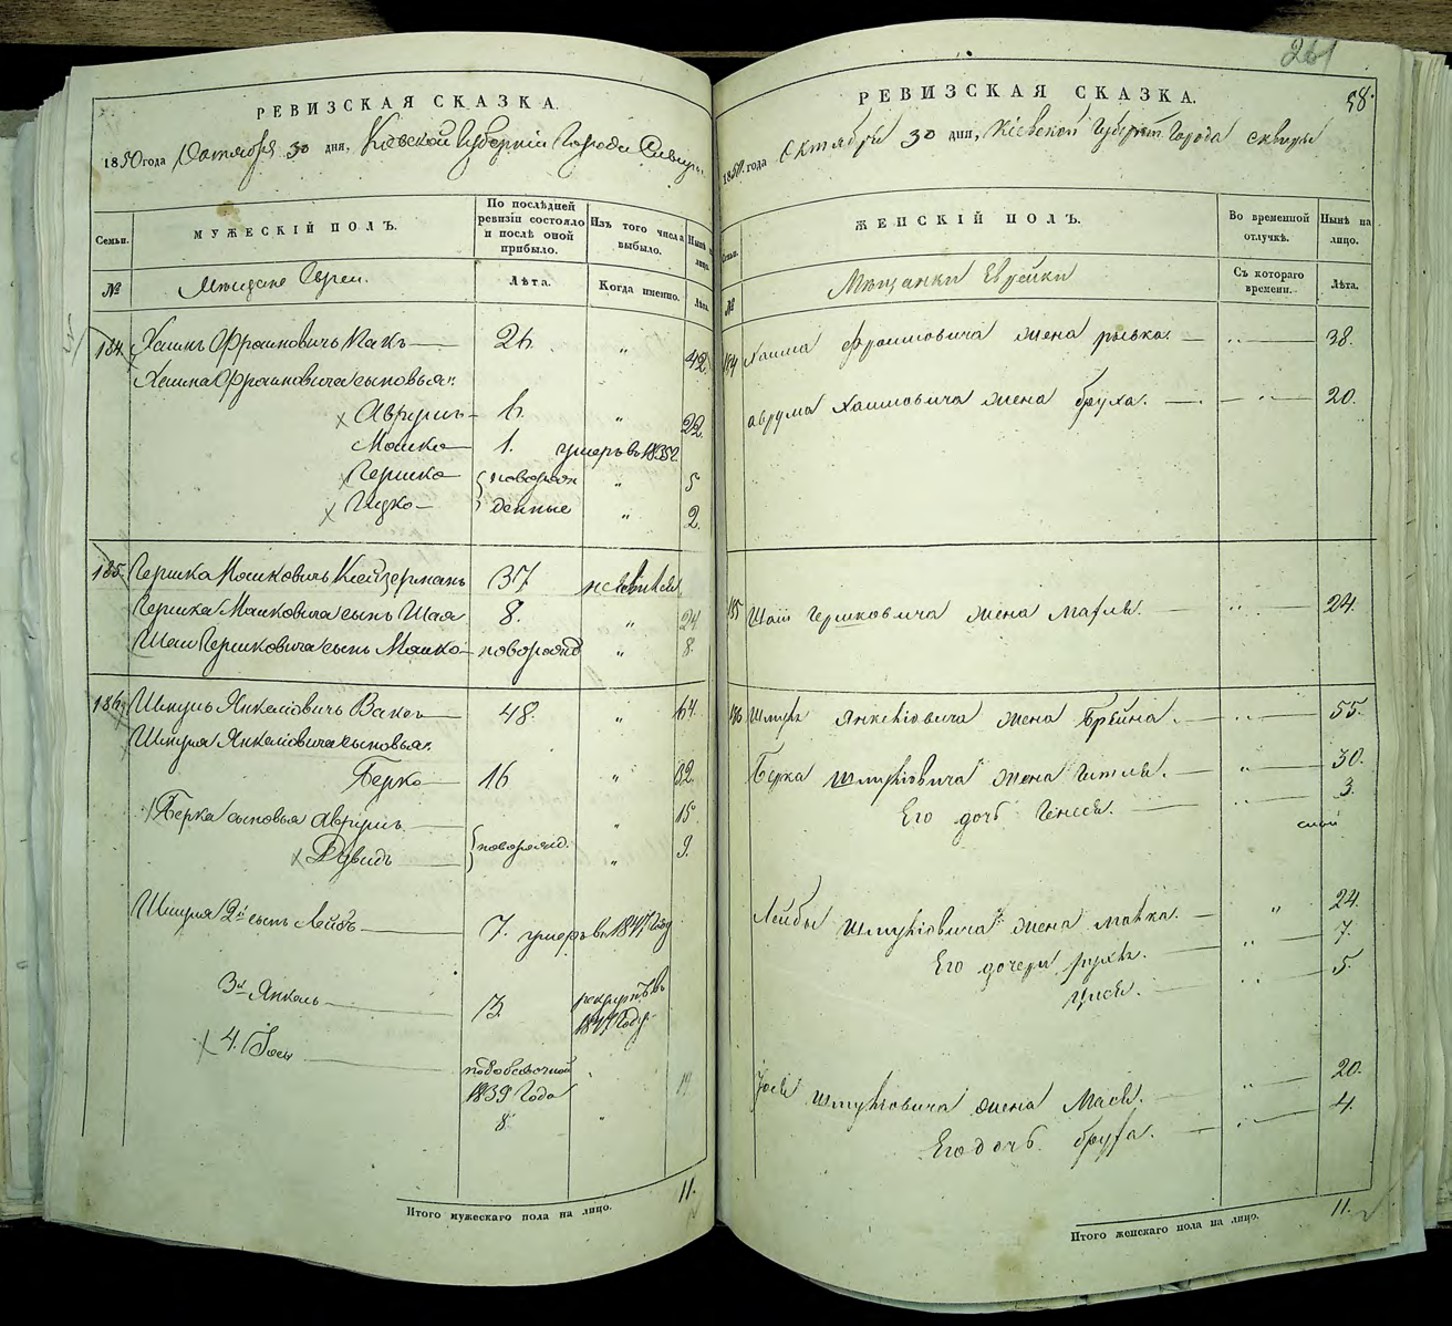 РЕВИЗСКАЯ СКАЗКА.
1850 года Октября 30 дня, Кіевской Губерніи Города Сквиры
Семьи.
МУЖЕСКІЙ ПОЛЪ.
По послѣдней ревизіи состояло и послѣ оной прибыло.
Изъ того числа выбыло.
Нынѣ на лицо.
№
Мѣщане Евреи.
Лѣта.
Когда именно.
Лѣта.
184 Хаимъ Фроимовичъ 26. " 42
Хаима Фроимовича сыновья:
Аврумъ 6. " 22.
Мошко 1. умеръ въ
Гершко новорож " 5
Ицко денные " 2.
185 Гершко Мошковичъ Клейзерманъ 37
Гершка Мошковича сынъ Шая 8. " 24
Шаи Гершковича сынъ Мошко новорожд " 8.
186 Шмуль Янкеліовичъ 48. " 64.
Шмуля Янкеліовича сыновья:
Берко 16 " 32.
Берка сыновья Аврумъ " 15
Дувидъ новорожд. " 9.
Шмуля 2й сынъ Лейба 7. умеръ въ 1847 Году
3й Янкель 13. рекрутъ въ
1847 Году
4. Іось
1839 Года
8 "
Итого мужескаго пола на лицо. 11.
261
РЕВИЗСКАЯ СКАЗКА.
58.
1850 года Октября 30 дня, Кіевской Губерніи Города Сквиры
Семьи.
ЖЕНСКІЙ ПОЛЪ.
Во временной отлучкѣ.
Нынѣ на лицо.
№
Мѣщанки Еврейки
Съ котораго времени.
Лѣта.
184 Хаима Фроимовича жена рывка. 38.
Аврума Хаимовича жена бруха. 20.
185 Шаи Гершковича жена 24
186 Шмуля Янкеліовича жена Брейна. 55.
Берка Шмуліовича жена Гитля. " 30.
Его дочь Генеся. 3.
Лейбы Шмуліовича жена малка. " 24.
Его дочери рухля. " 7.
Цися. 5.
Іося Шмуліовича жена Мася. " 20.
Его дочь бруха. 4.
Итого женскаго пола на лицо. 11.